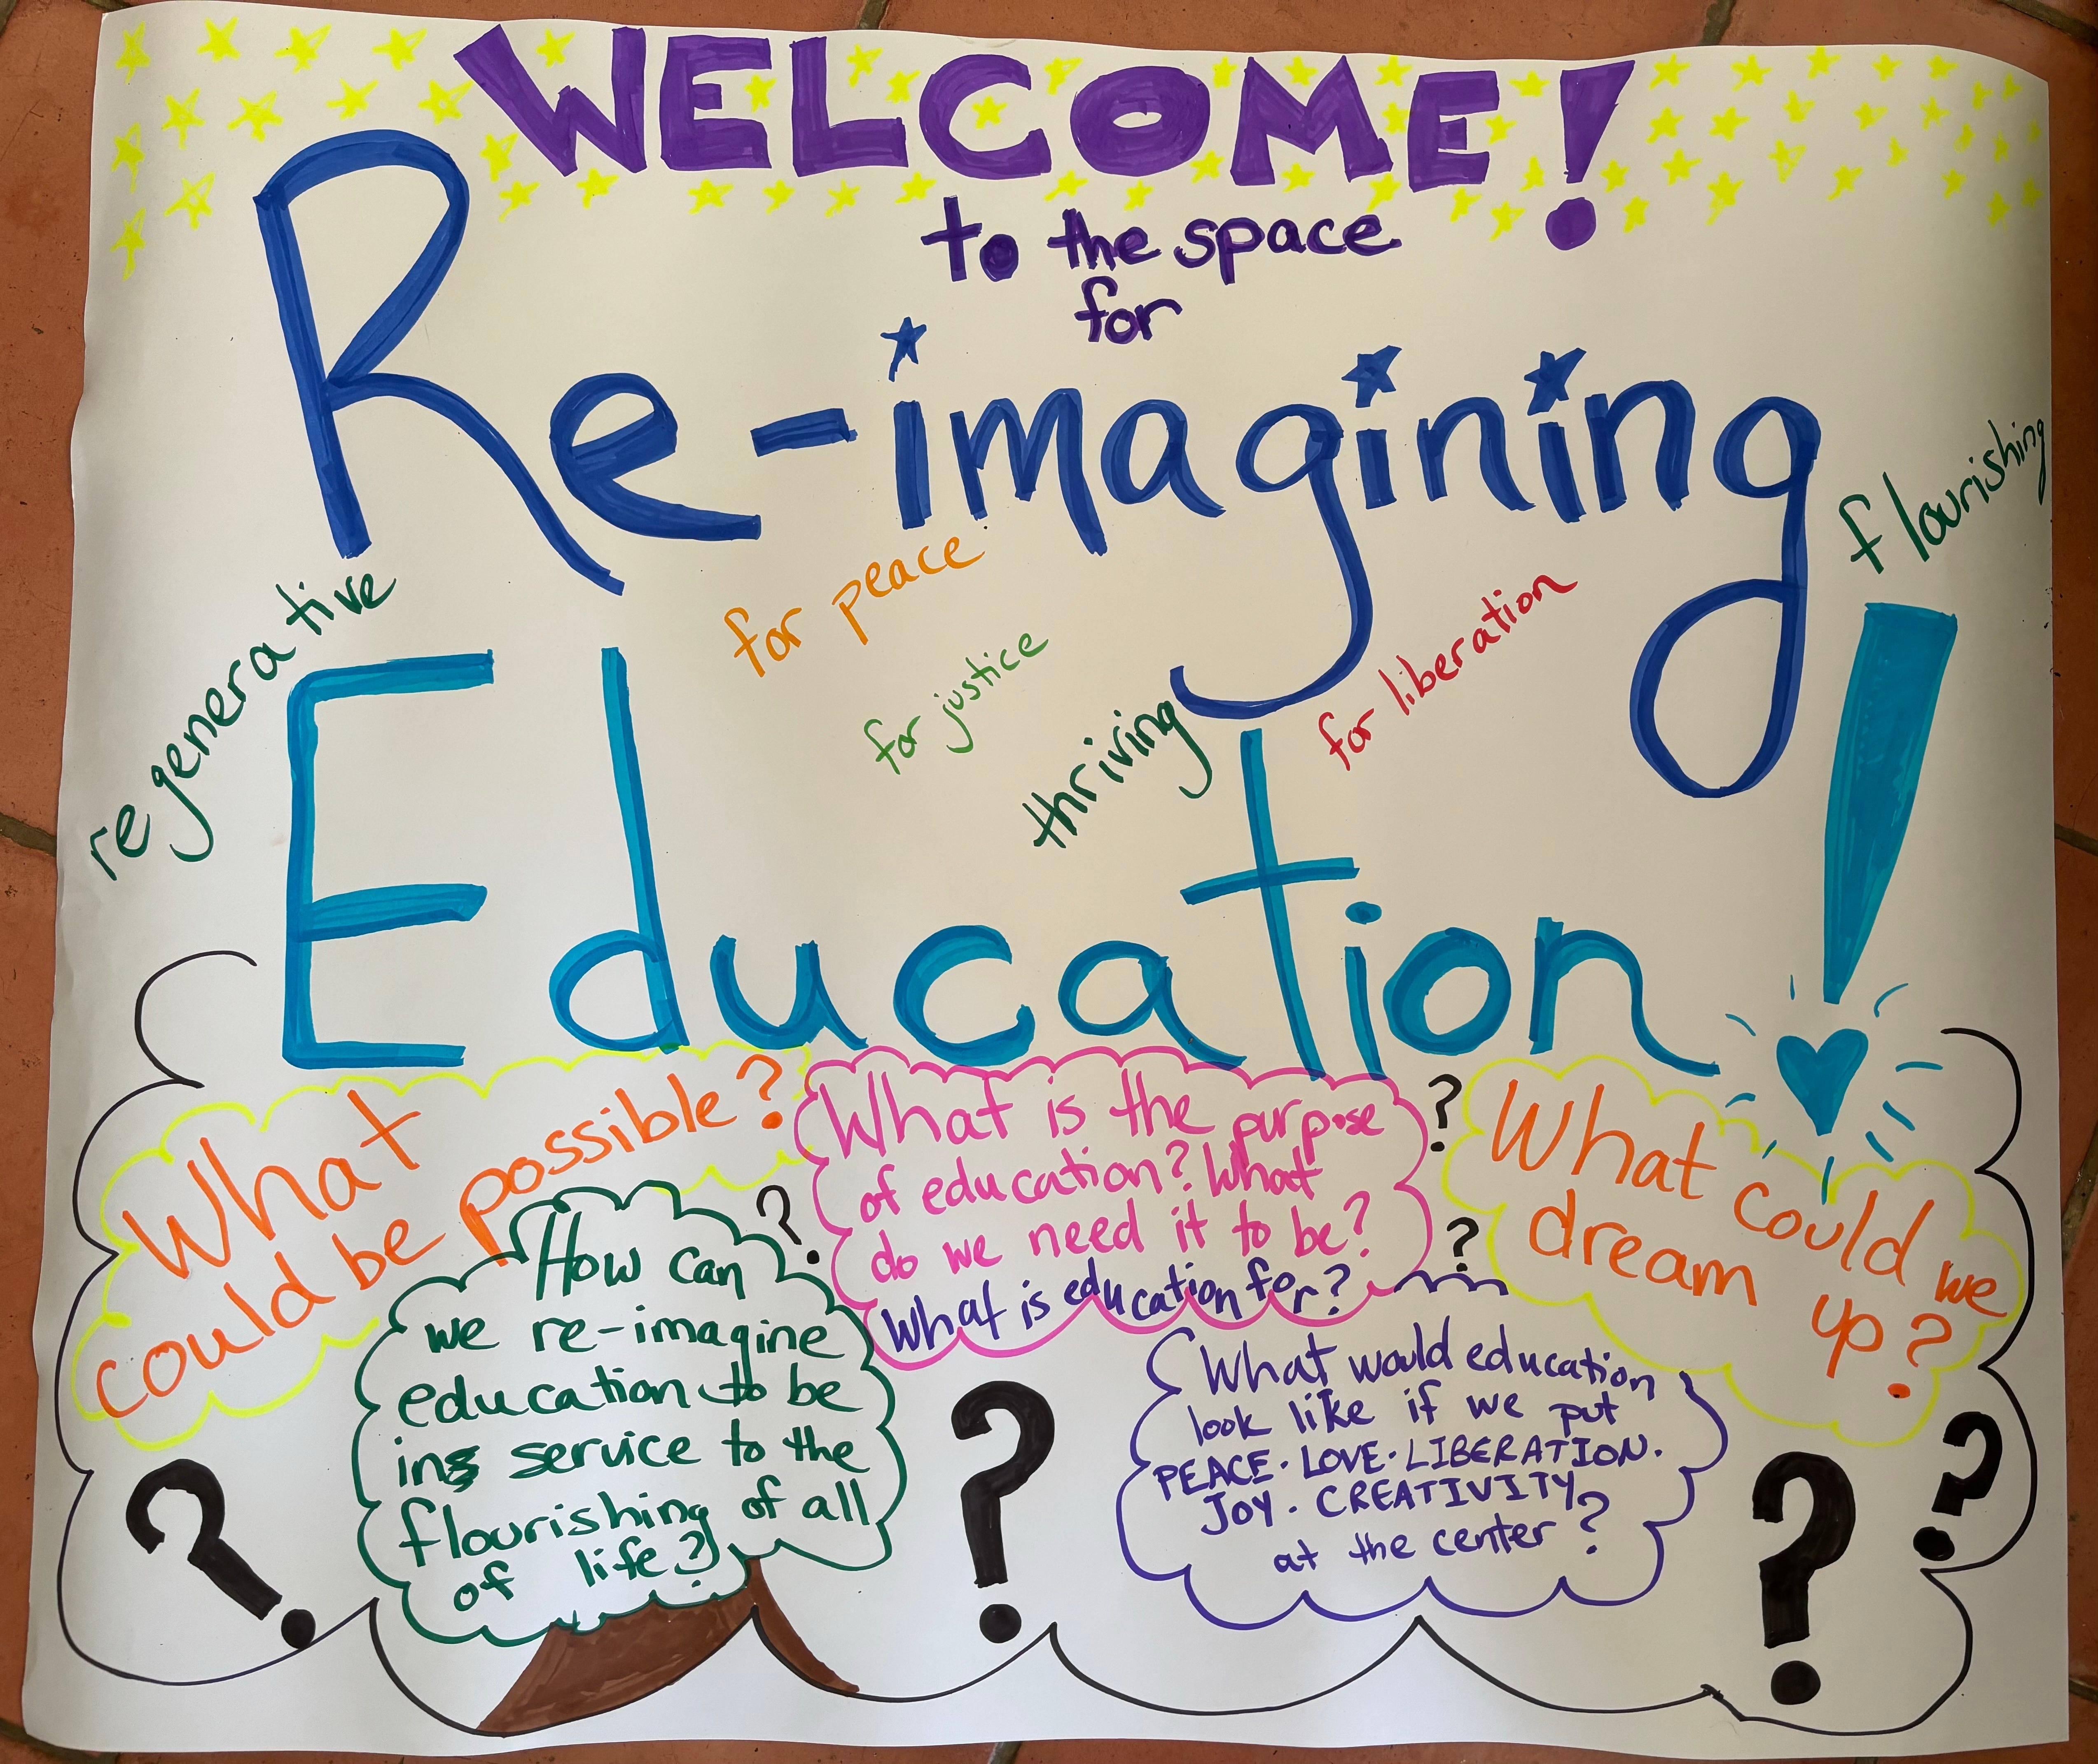 WELCOME!
to the space
for
Re-imagining
flourishing
regenerative
for peace
for justice
thriving
for liberation
Education!
What
could be possible?
What is the purpose
of education? What
do we need it to be?
What is education for?
?
?
?
What could we
dream up?
How can
we re-imagine
education to be
in service to the
flourishing of all
of life?
What would education
look like if we put
PEACE · LOVE · LIBERATION ·
JOY · CREATIVITY
at the center?
?
?
?
?